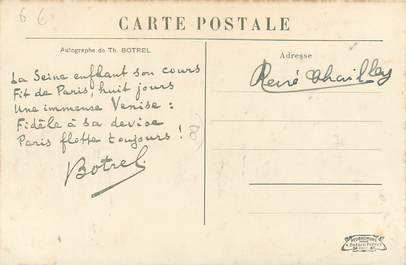 6 €
CARTE POSTALE
Autographe de Th. BOTREL
Adresse
La Seine enflant son cours
Fit de Paris, huit jours
Une immense Venise :
Fidèle à sa devise
Paris flotte toujours !
Botrel
René Chailley